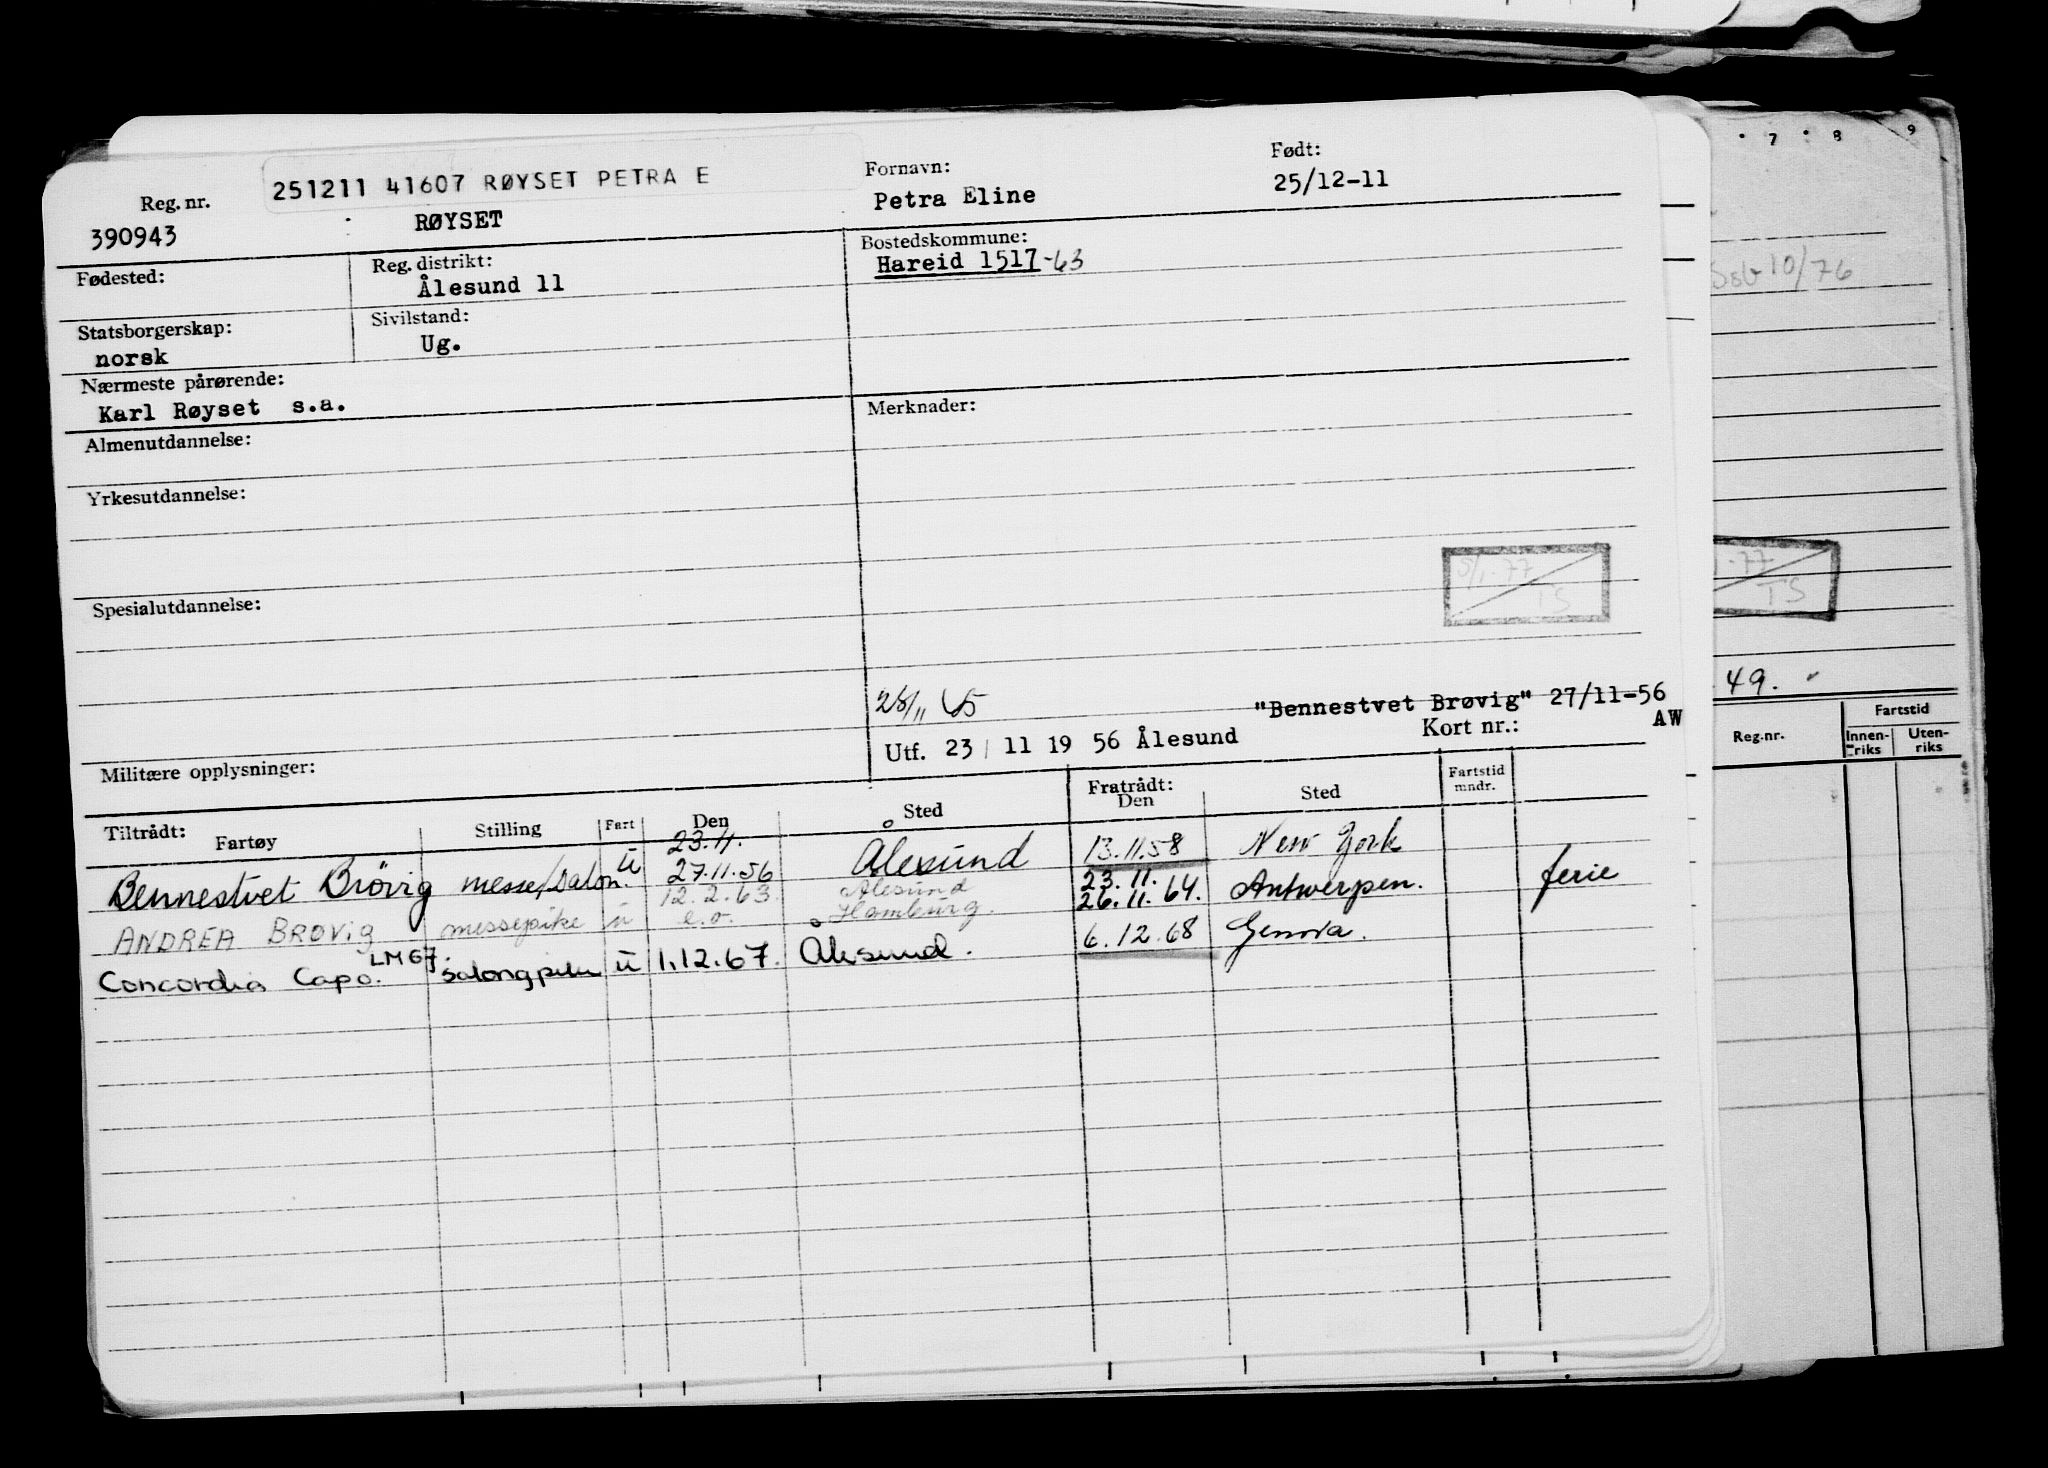 251211 41607 RØYSET PETRA E
Reg. nr.
390943
RØYSET
Fornavn:
Petra Eline
Født:
25/12-11
Fødested:
Reg. distrikt:
Ålesund 11
Bostedskommune:
Hareid 1517-63
Statsborgerskap:
norsk
Sivilstand:
Ug.
Nærmeste pårørende:
Karl Røyset s.a.
Almenutdannelse:
Merknader:
Yrkesutdannelse:
Spesialutdannelse:
5/1-77
TS
"Bennestvet Brøvig" 27/11-56
AW
Utf. 23/11 19 56 Ålesund
Kort nr.:
Militære opplysninger:
Tiltrådt:
Fartøy
Stilling
Fart
Den
Sted
Fratrådt:
Den
Sted
Fartstid
mndr.
23.11.
Bennestvet Brövig messe/salon. u 27.11.56 Ålesund 13.11.58 New York
12.2.63. Ålesund 23.11.
ANDREA BRØVIG messepike u e.o. Hamburg. 26.11.64. Antwerpen. ferie
LM67.
Concordia Capo. u 1.12.67. Ålesund. 6.12.68 Genova.
7 8 9
10/76
1-77
TS
49.
Reg.nr.
Fartstid
Innen-
riks
Uten-
riks